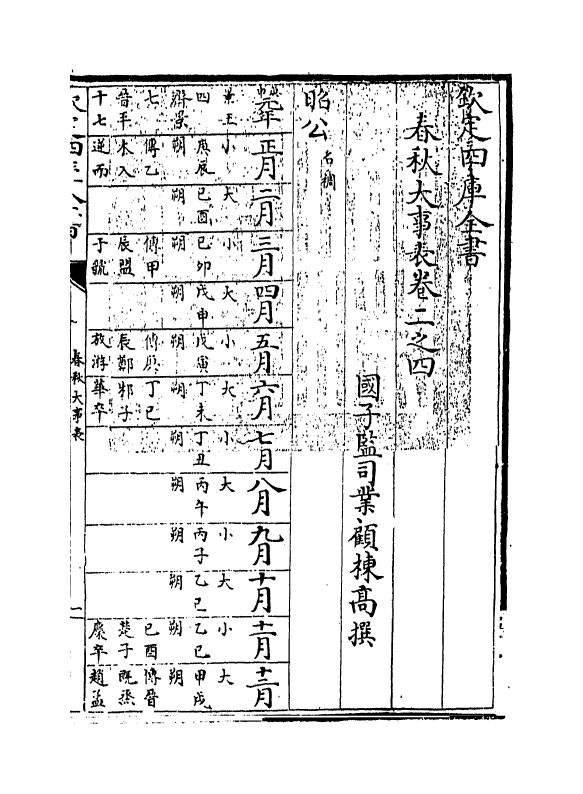 欽定四庫全書
春秋大事表卷二之四
國子監司業顧棟高撰
昭公 名稠
庚申元年 正月 二月 三月 四月 五月 六月 七月 八月 九月 十月 十一月 十二月
景王 小 大 小 大 小 大 小 大 小 大 小 大
四 庚辰 己酉 己卯 戊申 戊寅 丁未 丁丑 丙午 丙子 乙巳 乙巳 甲戌
齊景 朔 朔 朔 朔 朔 朔 朔 朔 朔 朔 朔 朔
七 傳乙 傳甲 傳庚 丁巳 己酉 傳晉
晉平 未入 辰盟 辰鄭 邾子 楚子 既烝
十七 逆而 于虢 放游 華卒 麇卒 趙孟
春秋大事表
一